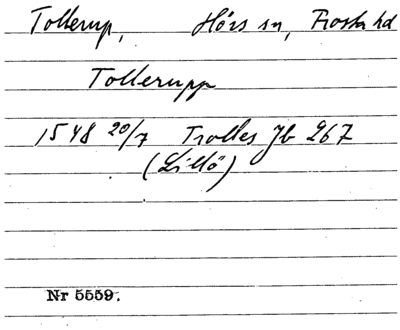 Tollerup, Hörs sn, Frosta hd
Tollerupp
1548 20/7 Trolles Jb 267
(Lillö)
Nr 5559.